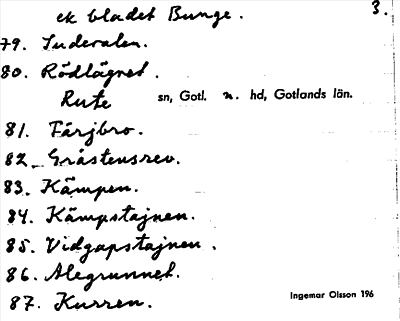 ek bladet Bunge. 3.
79. Inderalen.
80. Rödlägnet.
Rute sn, Gotl. n. hd, Gotlands län.
81. Färjbro.
82. Gråstensrev.
83. Kämpen.
84. Kämpstajnen.
85. Vidgapstajnen.
86. Alegrunnet.
87. Kurren.
Ingemar Olsson 196